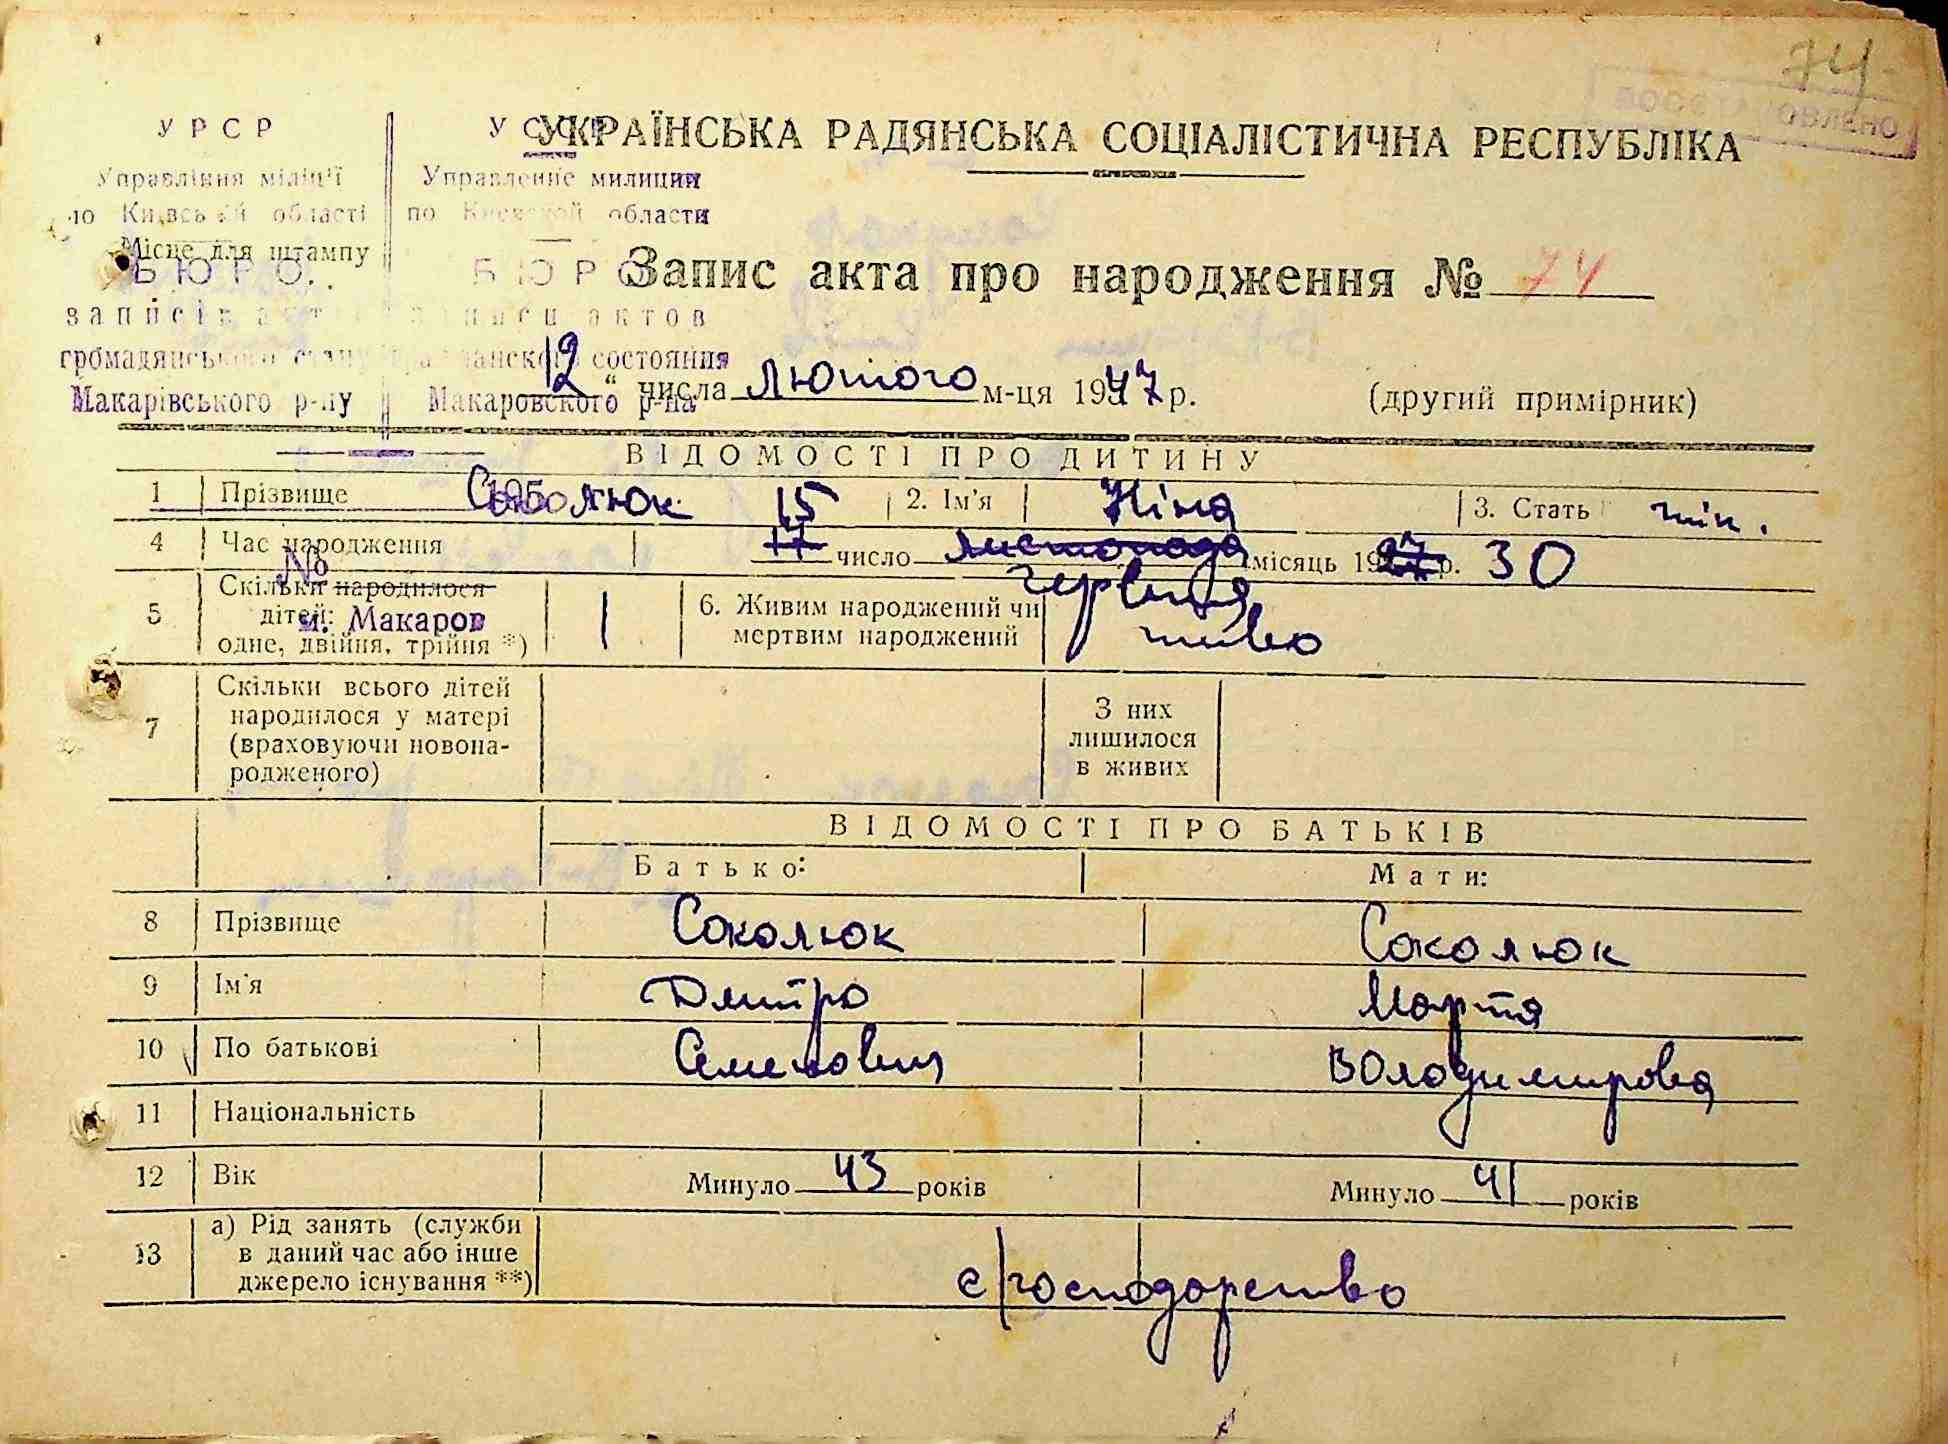 74
У Р С Р
Управління міліції
по Київській області
Місце для штампу
Б Ю Р О
записів актів
громадянського стану
Макарівського р-ну
У С С Р
Управление милиции
по Киевской области
Б Ю Р О
записи актов
гражданского состояния
Макаровского р-на
УКРАЇНСЬКА РАДЯНСЬКА СОЦІАЛІСТИЧНА РЕСПУБЛІКА
Запис акта про народження № 74
12 " числа лютого м-ця 1947 р. (другий примірник)
ВІДОМОСТІ ПРО ДИТИНУ
1 Прізвище Соколюк 2. Ім'я Ніна 3. Стать жін.
4 Час народження 15 17 число листопада червня місяць 1927 р. 30
№
5 Скільки народилося дітей: одне, двійня, трійня *) 1 6. Живим народжений чи мертвим народжений живо
м. Макаров
7 Скільки всього дітей народилося у матері (враховуючи новона-родженого) З них лишилося в живих
ВІДОМОСТІ ПРО БАТЬКІВ
Батько: Мати:
8 Прізвище Соколюк Соколюк
9 Ім'я Дмитро Мартя
10 По батькові Семенович Володимировна
11 Національність
12 Вік Минуло 43 років Минуло 41 років
13 а) Рід занять (служби в даний час або інше джерело існування **) с/господарство